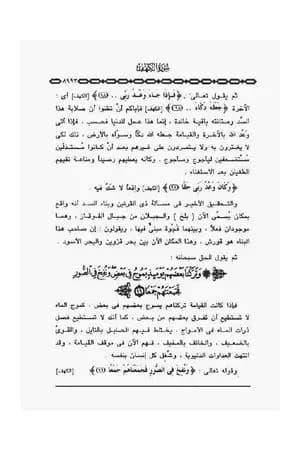 سورة الكهف
٨٩٩٣
ثم يقول تعالى: ﴿ فَإِذَا جَاءَ وَعْدُ رَبِّي .. (٩٨) ﴾ [الكهف] أي :
الآخرة ﴿ جَعَلَهُ دَكَّاءَ .. (٩٨) ﴾ [الكهف] فإياكم أن تظنوا أن صلابة هذا
السد ومتانته باقية خالدة ، إنما هذا عمل للدنيا فحسب ، فإذا أتى
وَعْد الله بالآخرة والقيامة جعله الله دكاً وسوّاه بالأرض ، ذلك لكى
لا يغترون به ولا يتمردون على غيرهم بعد أنْ كانوا مُستذلّين
مُستضعفين ليأجوج ومأجوج . وكأنه يعطيهم رصيداً ومناعة تقيهم
الطغيان بعد الاستغناء .
﴿ وَكَانَ وَعْدُ رَبِّي حَقًّا (٩٨) ﴾ [الكهف] واقعاً لا شكّ فيه .
والتحقيق الأخير فى مسألة ذى القرنين وبناء السد أنه واقع
بمكان يُسمّى الآن ( بلخ ) والجبلان من جبال القوقاز ، وهما
موجودان فعلاً ، وبينهما فَجْوة مبنىٌّ فيها ، ويقولون : إن صاحب هذا
البناء هو قورش ، وهذا المكان الآن بين بحر قزوين والبحر الأسود .
ثم يقول الحق سبحانه :
﴿ وَتَرَكْنَا بَعْضَهُمْ يَوْمَئِذٍ يَمُوجُ فِي بَعْضٍ وَنُفِخَ فِي الصُّورِ
فَجَمَعْنَاهُمْ جَمْعًا (٩٩) ﴾
فإذا كانت القيامة تركناهم يموج بعضهم فى بعض ، كموج الماء
لا تستطيع أن تفرق بعضهم من بعض ، كما أنك لا تستطيع فصل
ذرات الماء فى الأمواج . يختلط فيهم الحابل بالنابل ، والقوىّ
بالضعيف ، والخائف بالمخيف ، فهم الآن فى موقف القيامة ، وقد
انتهت العداوات الدنيوية ، وشُغِل كل إنسان بنفسه .
وقوله تعالى : ﴿ وَنُفِخَ فِي الصُّورِ فَجَمَعْنَاهُمْ جَمْعًا (٩٩) ﴾ [الكهف]